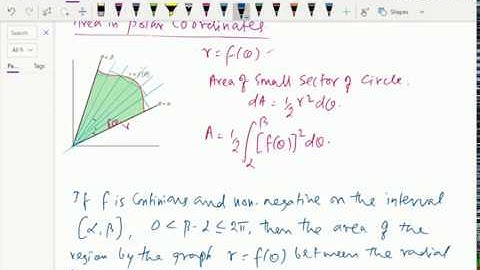 Area in polar Coordinates
r = f(θ)
Area of Small Sector of Circle.
dA = 1/2 r² dθ.
A = 1/2 ∫_α^β [f(θ)]² dθ.
If f is Continious and non-negative on the interval
[α, β], 0 < β - α ≤ 2π, then the area of the
region by the graph r = f(θ) between the radial
Shapes